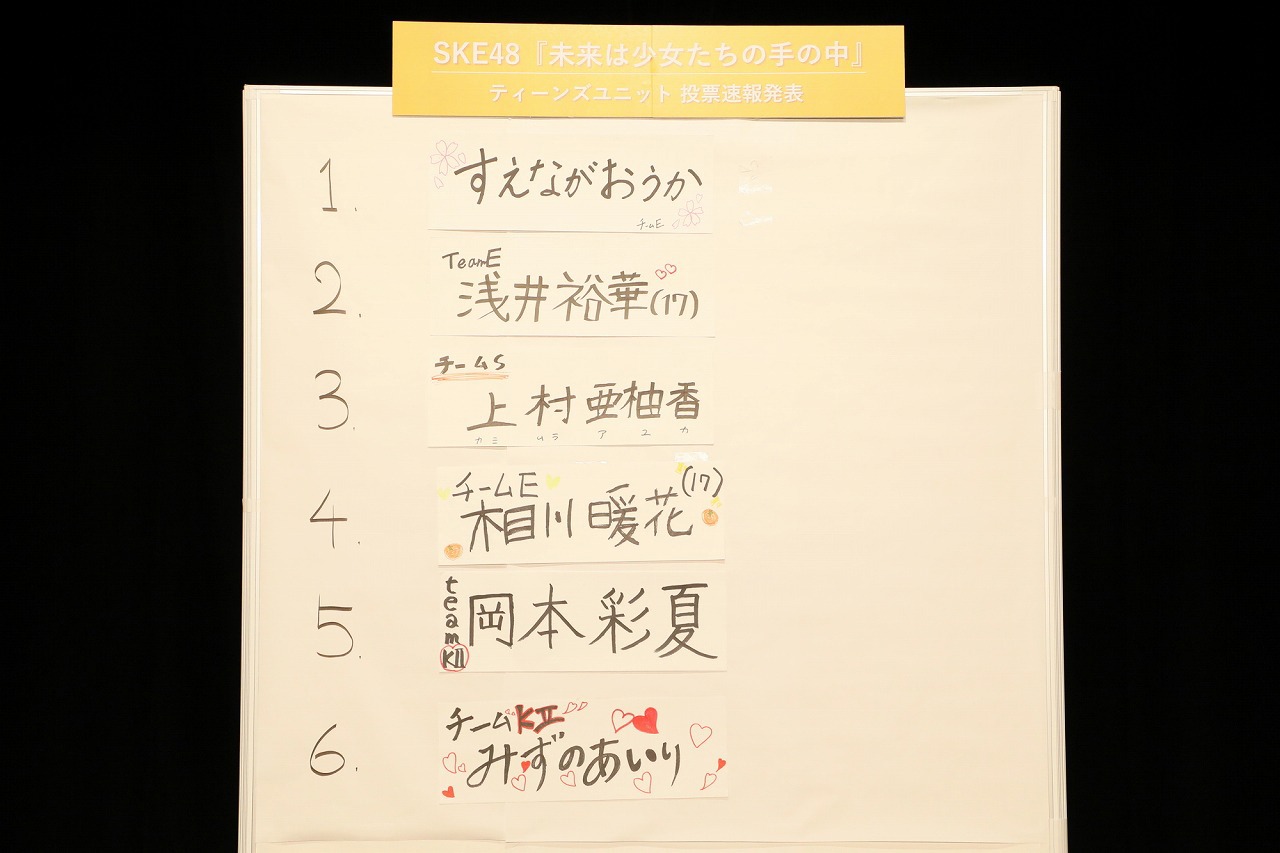 SKE48『未来は少女たちの手の中』
ティーンズユニット 投票速報発表
1.
すえながおうか
チームE
2.
TeamE
浅井裕華(17)
3.
チームS
上村亜柚香
カミ ムラ ア ユ カ
4.
チームE
相川暖花(17)
5.
team KII
岡本彩夏
6.
チームKⅡ
みずのあいり